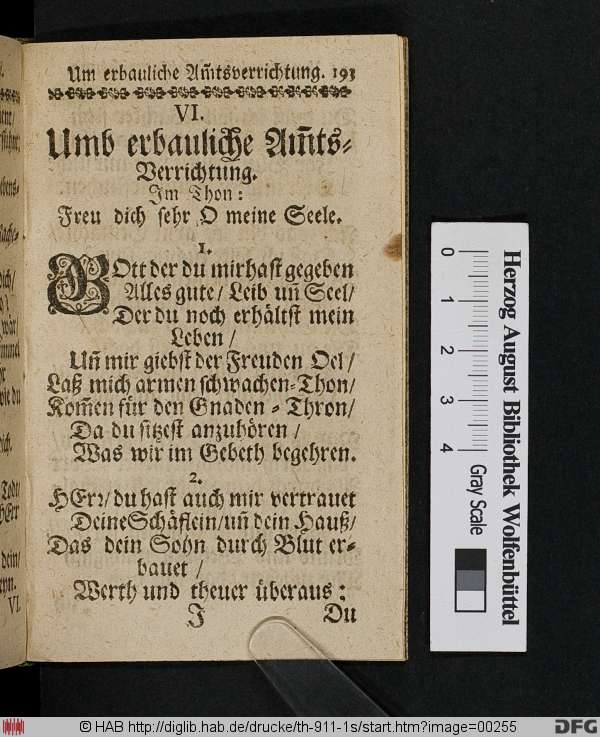 Um erbauliche Am̃tsverrichtung. 193
VI.
Umb erbauliche Am̃ts⸗
Verrichtung.
Im Thon:
Freu dich sehr O meine Seele.
1.
GOtt der du mir hast gegeben
Alles gute / Leib uñ Seel /
Der du noch erhältst mein
Leben /
Uñ mir giebst der Freuden Oel /
Laß mich armen schwachen⸗Thon /
Kom̃en für den Gnaden⸗Thron /
Da du sitzest anzuhören /
Was wir im Gebeth begehren.
2.
HErr / du hast auch mir vertrauet
Deine Schäflein / uñ dein Hauß /
Das dein Sohn durch Blut er⸗
bauet /
Werth und theuer überaus:
J Du
VI.
0 1 2 3 4
Herzog August Bibliothek Wolfenbüttel
Gray Scale
© HAB http://diglib.hab.de/drucke/th-911-1s/start.htm?image=00255
DFG